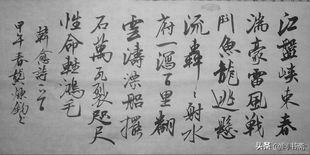 江盤峽束春
湍豪雷風戰
鬥魚龍逃懸
流轟〻射水
府一瀉百里翻
雲濤漂船擺
石萬瓦裂咫尺
性命輕鴻毛
韓愈詩一首
甲午春
头条